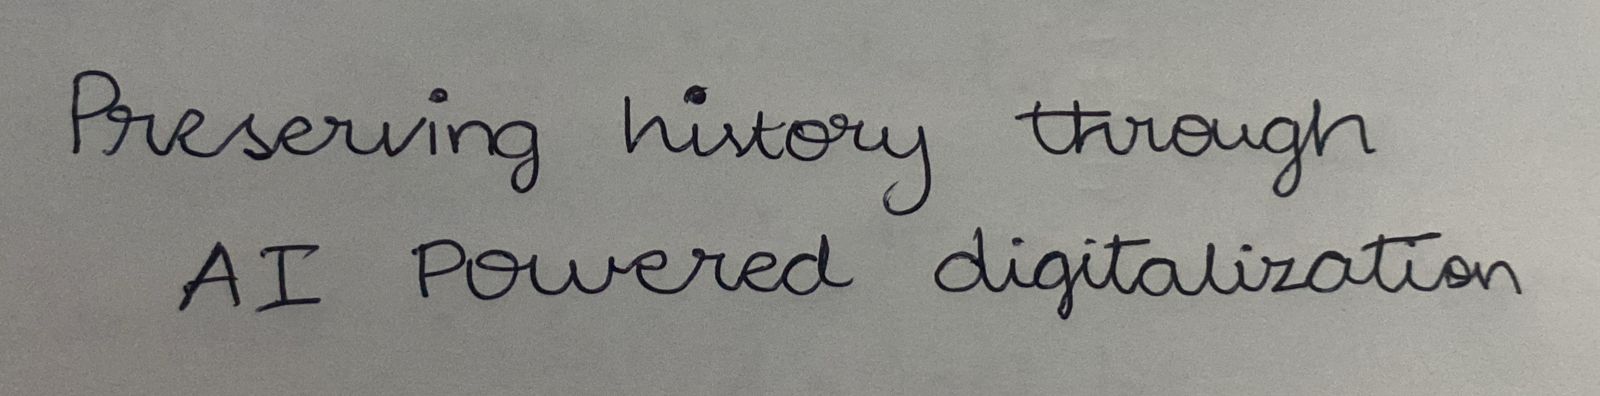 Preserving history through
AI Powered digitalization